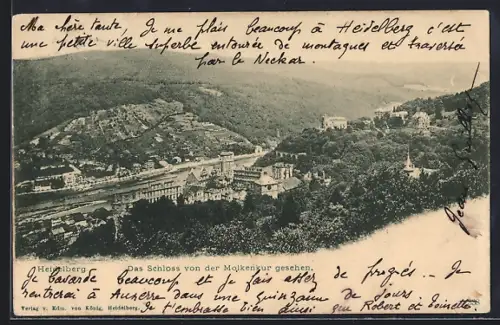 Ma chère tante, Je me plais beaucoup à Heidelberg c'est
une petite ville superbe entourée de montagnes et traversée
par le Neckar.
Heidelberg Das Schloss von der Molkenkur gesehen.
Je bavarde beaucoup et je fais assez de progrès... Je
rentrerai à Auxerre dans une quinzaine de jours
Je t'embrasse bien ainsi que Robert et
Verlag v. Edm. von König, Heidelberg.
Jean